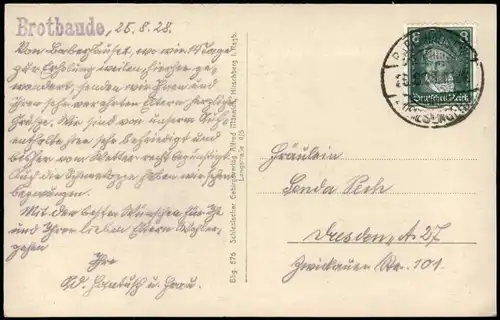 Brotbaude, 25.8.28.
Von Baberhäuser, wo wir 14 Tage
zur Erholung weilen, hierher ge-
wandert, senden wir Ihnen und
Ihren sehr verehrten Eltern herzliche
Grüße. Wir sind von unserm
enthalte sehr befriedigt und
bisher vom Wetter recht begünstigt.
Auch der Schneekoppe haben wir schon
bezwungen.
Mit den besten Wünschen für Ihr
und Ihrer lieben Eltern Wohler-
gehen
Ihre
Ed. Hantusch u. Frau.
Bbg. 576 Schlesischer Gebirgsverlag Alfred Hirschberg i. Rsgb.
Langstraße 4/5
8 8
Deutsches Reich
Fräulein
Senda Pech
Dresden-A. 27
Zwickauer Str. 101.